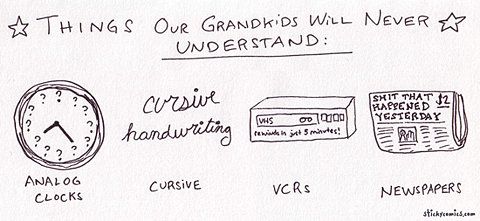 ☆ THINGS OUR GRANDKIDS WILL NEVER ☆
UNDERSTAND:
? ? ? ? ? ? ? ? ? ? ? ?
cursive
handwriting
VHS
rewinds in just 5 minutes!
SHIT THAT $2
HAPPENED
YESTERDAY
ANALOG
CLOCKS
CURSIVE
VCRS
NEWSPAPERS
stickycomics.com